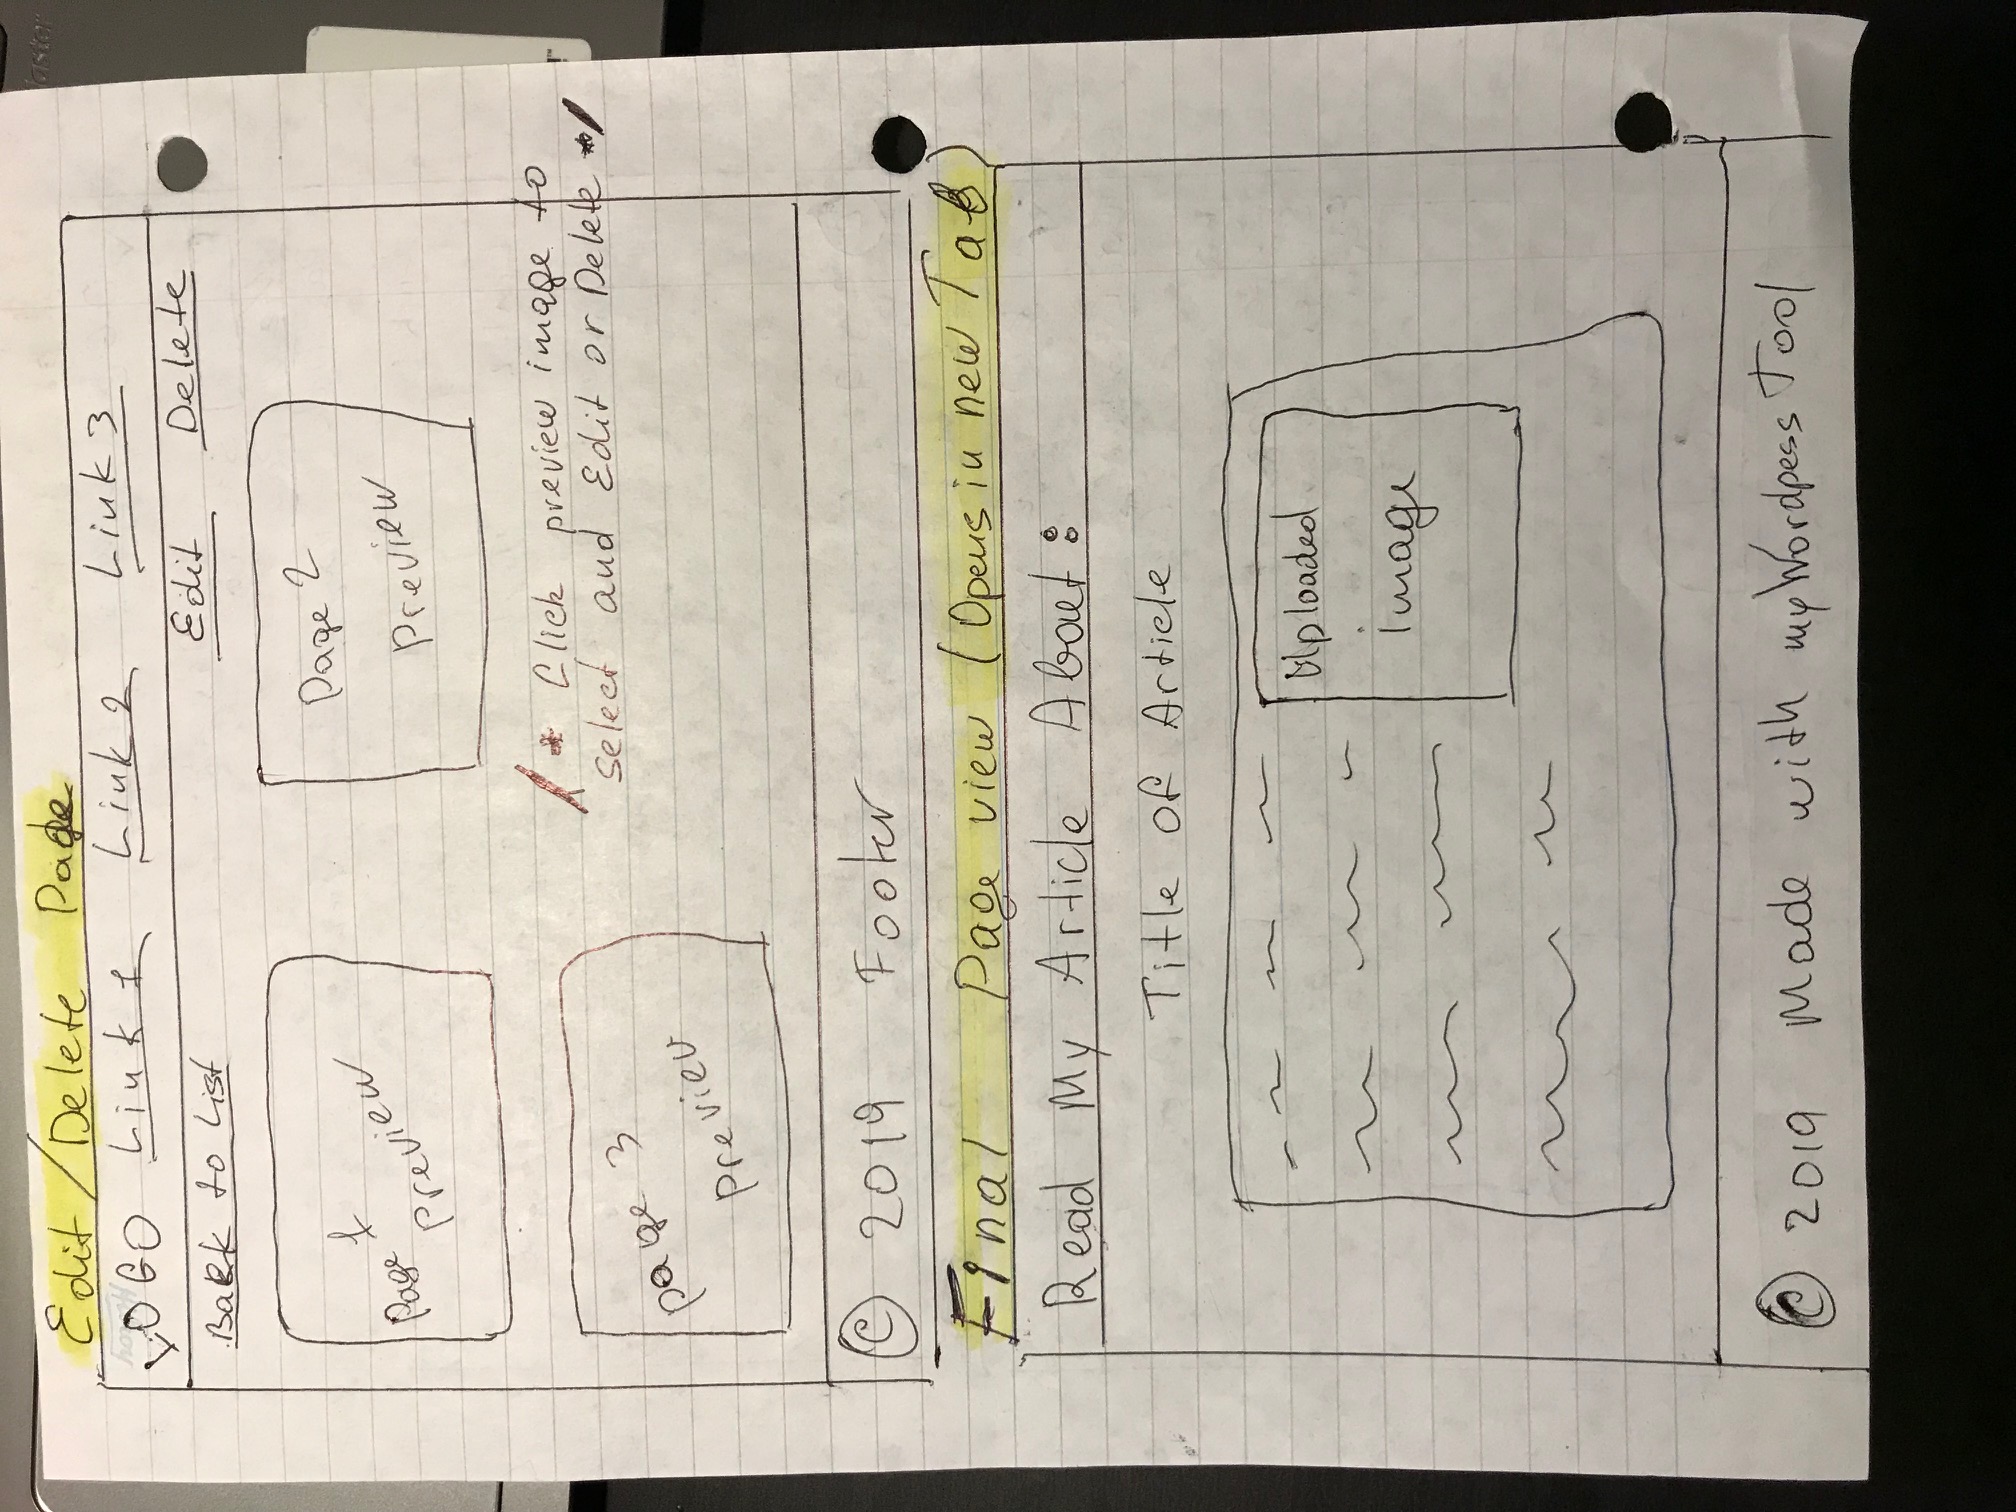 Edit/Delete Page
LOGO Link 1 Link 2 Link 3
Back to List Edit Delete
Page 1
Preview
Page 2
Preview
/* Click preview image to
select and Edit or Delete */
page 3
preview
© 2019 Footer
Final Page view (Opens in new Tab)
Read My Article About:
Title of Article
Uploaded
image
© 2019 Made with myWordpess Tool